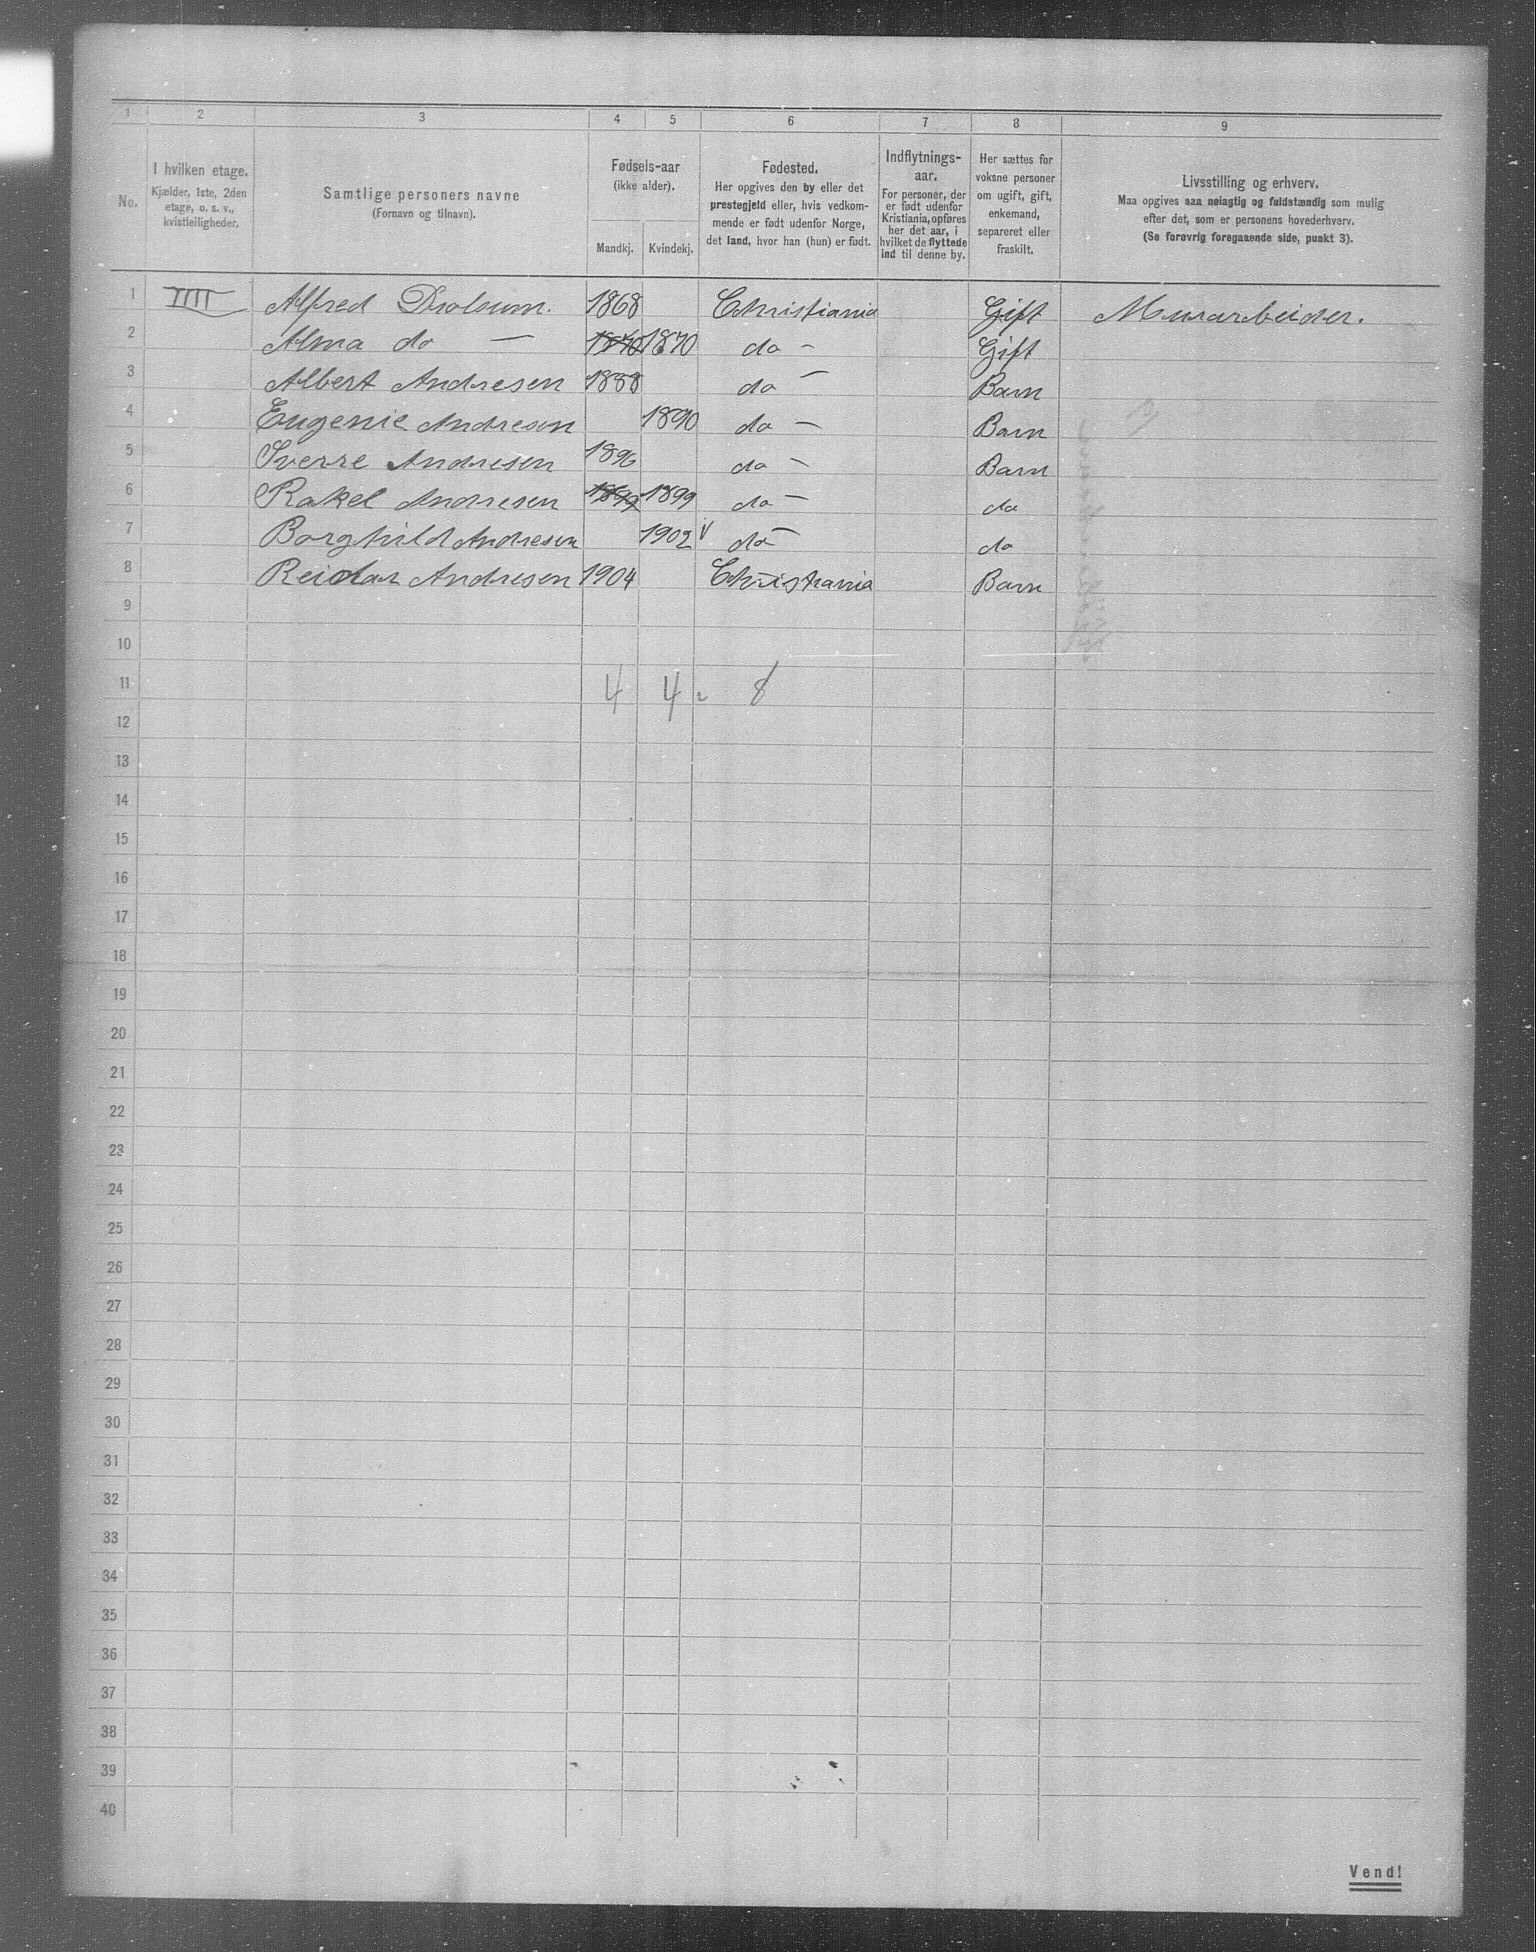 1 2 3 4 5 6 7 8 9
No.
I hvilken etage.
Kjælder, 1ste, 2den
etage, o. s. v.,
kvistleiligheder.
Samtlige personers navne
(Fornavn og tilnavn).
Fødsels-aar
(ikke alder).
Mandkj. Kvindekj.
Fødested.
Her opgives den by eller det
prestegjeld eller, hvis vedkom-
mende er født udenfor Norge,
det land, hvor han (hun) er født.
Indflytnings-
aar.
For personer, der
er født udenfor
Kristiania, opføres
her det aar, i
hvilket de flyttede
ind til denne by.
Her sættes for
voksne personer
om ugift, gift,
enkemand,
separeret eller
fraskilt.
Livsstilling og erhverv.
Maa opgives saa nøiagtig og fuldstændig som mulig
efter det, som er personens hovederhverv.
(Se forøvrig foregaaende side, punkt 3).
1 IIII Alfred Drolsum. 1868 Christiania Gift Murarbeider.
2 Alma do — 1870 1870 do - Gift
3 Albert Andresen 1888 do - Barn
4 Eugenie Andresen 1890 do - Barn
5 Sverre Andresen 1896 do - Barn
6 Rakel Andresen 1899 1899 do - do
7 Borghild Andresen 1902 v do - do
8 Reidar Andresen 1904 Christiania Barn
9
10
11 4 4 8
12
13
14
15
16
17
18
19
20
21
22
23
24
25
26
27
28
29
30
31
32
33
34
35
36
37
38
39
40
Vend!